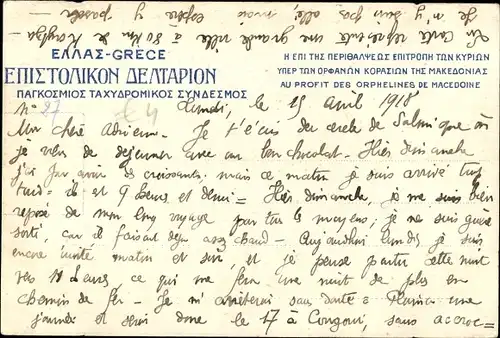 La carte représente une grande ville à 80 km de Kouytza
Je n'y suis pas allé, mais espère y passer
ΕΛΛΑΣ-GRECE
ΕΠΙΣΤΟΛΙΚΟΝ ΔΕΛΤΑΡΙΟΝ
ΠΑΓΚΟΣΜΙΟΣ ΤΑΧΥΔΡΟΜΙΚΟΣ ΣΥΝΔΕΣΜΟΣ
Η ΕΠΙ ΤΗΣ ΠΕΡΙΘΑΛΨΕΩΣ ΕΠΙΤΡΟΠΗ ΤΩΝ ΚΥΡΙΩΝ
ΥΠΕΡ ΤΩΝ ΟΡΦΑΝΩΝ ΚΟΡΑΣΙΩΝ ΤΗΣ ΜΑΚΕΔΟΝΙΑΣ
AU PROFIT DES ORPHELINES DE MACEDOINE
N° 27 Lundi, le 15 avril 1918
Mon chéri Adrien - Je t'écris du cercle de Salonique où
je viens de dejeuner avec un bon chocolat - Hier dimanche
j'ai pu avoir des croissants, mais ce matin je suis arrivé trop
tard: il est 9 heures et demi - Hier dimanche, je me suis bien
reposé de mon long voyage par tous les moyens; je ne suis guère
sorti, car il faisait déjà assez chaud - Aujourd'hui lundi je suis
encore invité matin et soir, et je pense partir cette nuit
vers 11 heures ce qui me fera une nuit de plus en
chemin de fer - Je m'arrêterai sans doute à Florina une
journée et serai donc le 17 à Congoni, sans accroc -